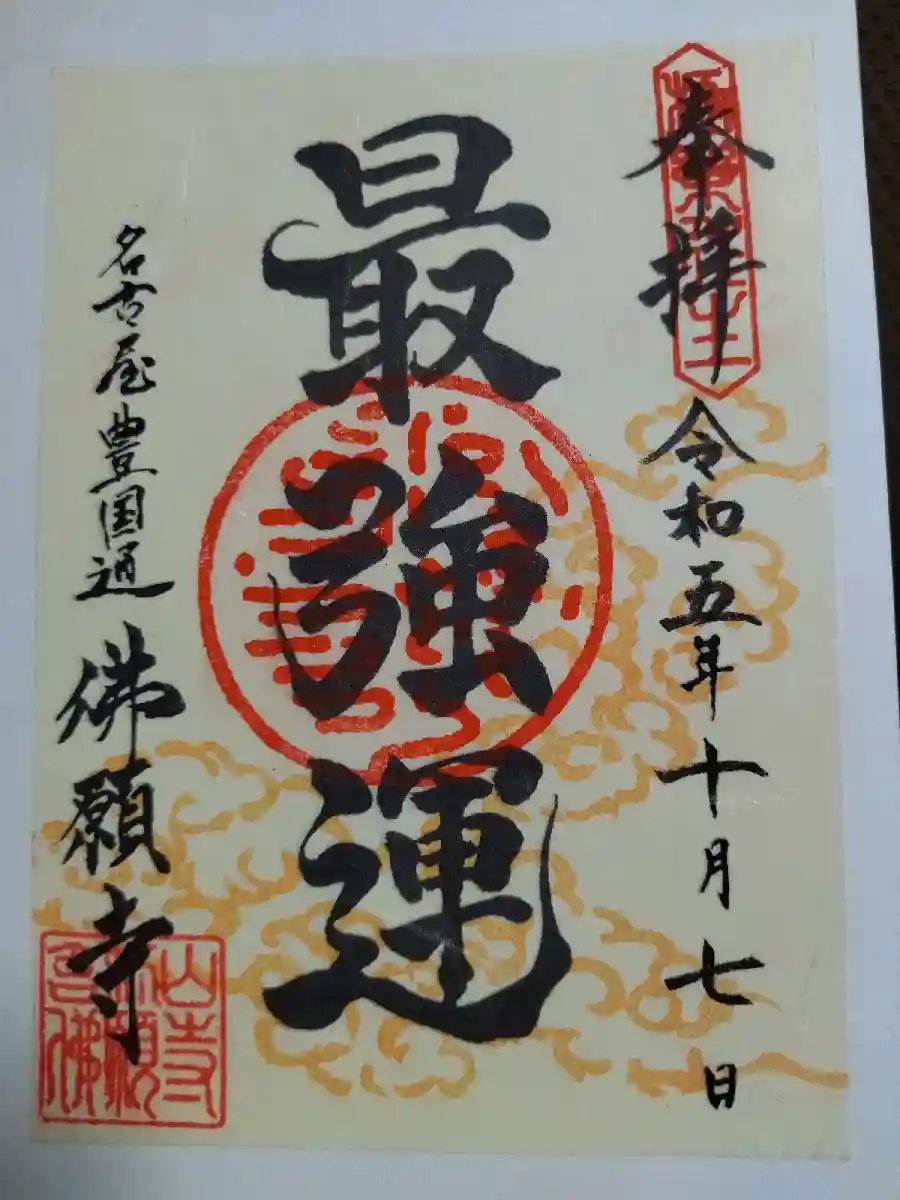 奉拝 令和五年十月七日
最強運
名古屋豊国通 佛願寺